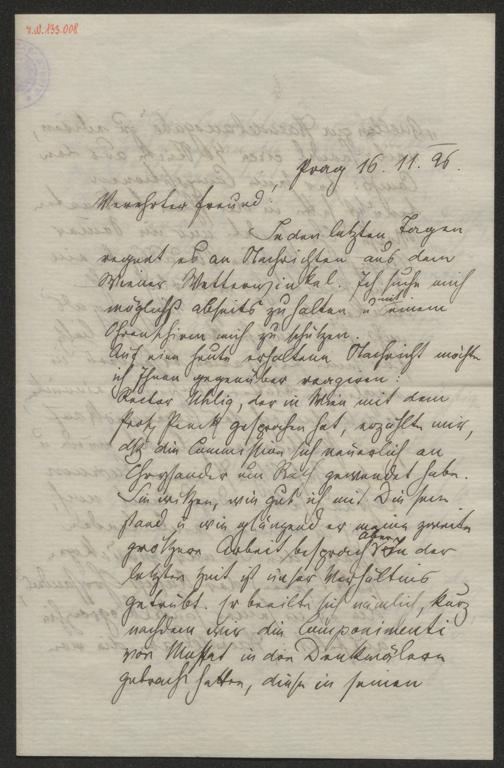 I.N. 133.008
Prag 16. 11. 96.
Verehrter Freund!
In den letzten Tagen
regnet es an Nachrichten aus dem
Wiener Wetterwinkel. Ich suche mich
möglichst abseits zu halten u mit einem
Ohrenschirm mich zu schützen.
Auf eine heute erhaltene Nachricht möchte
ich Ihnen gegenüber reagiren:
Rector Uhlig, der in Wien mit dem
Prof. Penck gesprochen hat, erzählte mir,
dß die Commission sich neuerlich an
Chrysander um Rath gewendet habe.
Sie wissen, wie gut ich mit Diesem
stand u wie glänzend er meine zweite
größere Arbeit besprach. Aber in der
letzten Zeit ist unser Verhältnis
getrübt. Er beeilte sich nämlich, kurz
nachdem wir die Componimenti
von Muffat in den Denkmälern
gebracht hatten, diese in seinen